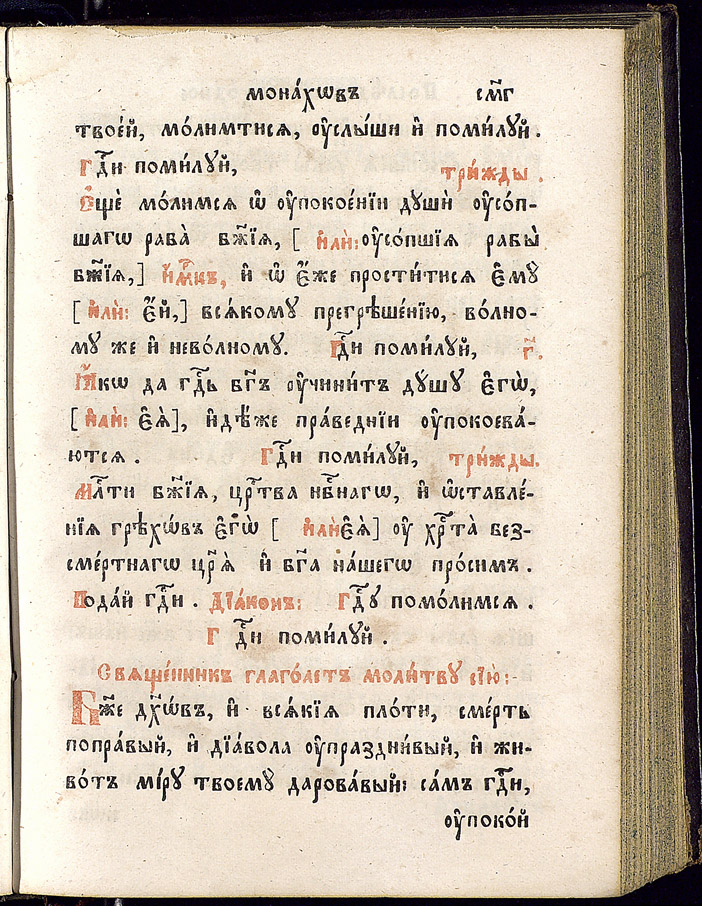 мона́хѡвъ смг҃
твое́й, мо́лимтисѧ, ᲂу҆слы́ши и҆ поми́лꙋй.
гдⷭ҇и поми́лꙋй, три́жды.
Є҆щѐ мо́лимсѧ ѡ҆ ᲂу҆покое́нїи дꙋшѝ ᲂу҆со́п-
шагѡ раба̀ бж҃їѧ, [ и҆лѝ: ᲂу҆со́пшїѧ рабы̀
бж҃їѧ,] и҆́мⷬ҇къ, и҆ ѡ҆ є҆́же прости́тисѧ є҆мꙋ̀
[ и҆лѝ: є҆́й,] всѧ́комꙋ прегрѣше́нїю, во́лно-
мꙋ же и҆ нево́лномꙋ. Гдⷭ҇и поми́лꙋй, г҃.
Ꙗ҆́кѡ да гдⷭ҇ь бг҃ъ ᲂу҆чини́тъ дꙋ́шꙋ є҆гѡ̀,
[ и҆лѝ: є҆ѧ̀], и҆дѣ́же пра́веднїи ᲂу҆покоева́-
ютсѧ. Гдⷭ҇и поми́лꙋй, три́жды.
Млⷭ҇ти бж҃їѧ, црⷭ҇тва нбⷭ҇нагѡ, и҆ ѡ҆ставле́-
нїѧ грѣхѡ́въ є҆гѡ̀ [ и҆лѝ є҆ѧ̀] ᲂу҆ хрⷭ҇та̀ без-
сме́ртнагѡ цр҃ѧ̀ и҆ бг҃а на́шегѡ про́симъ.
Пода́й гдⷭ҇и. Дїа́конъ: Гдⷭ҇ꙋ помо́лимсѧ.
Гдⷭ҇и поми́лꙋй.
Свѧще́нникъ глаго́летъ моли́твꙋ сїю̀:
Бж҃е дх҃ѡ́въ, и҆ всѧ́кїѧ пло́ти, сме́рть
попра́вый, и҆ дїа́вола ᲂу҆праздни́вый, и҆ жи-
во́тъ мі́рꙋ твоемꙋ̀ дарова́вый: са́мъ гдⷭ҇и,
ᲂу҆поко́й